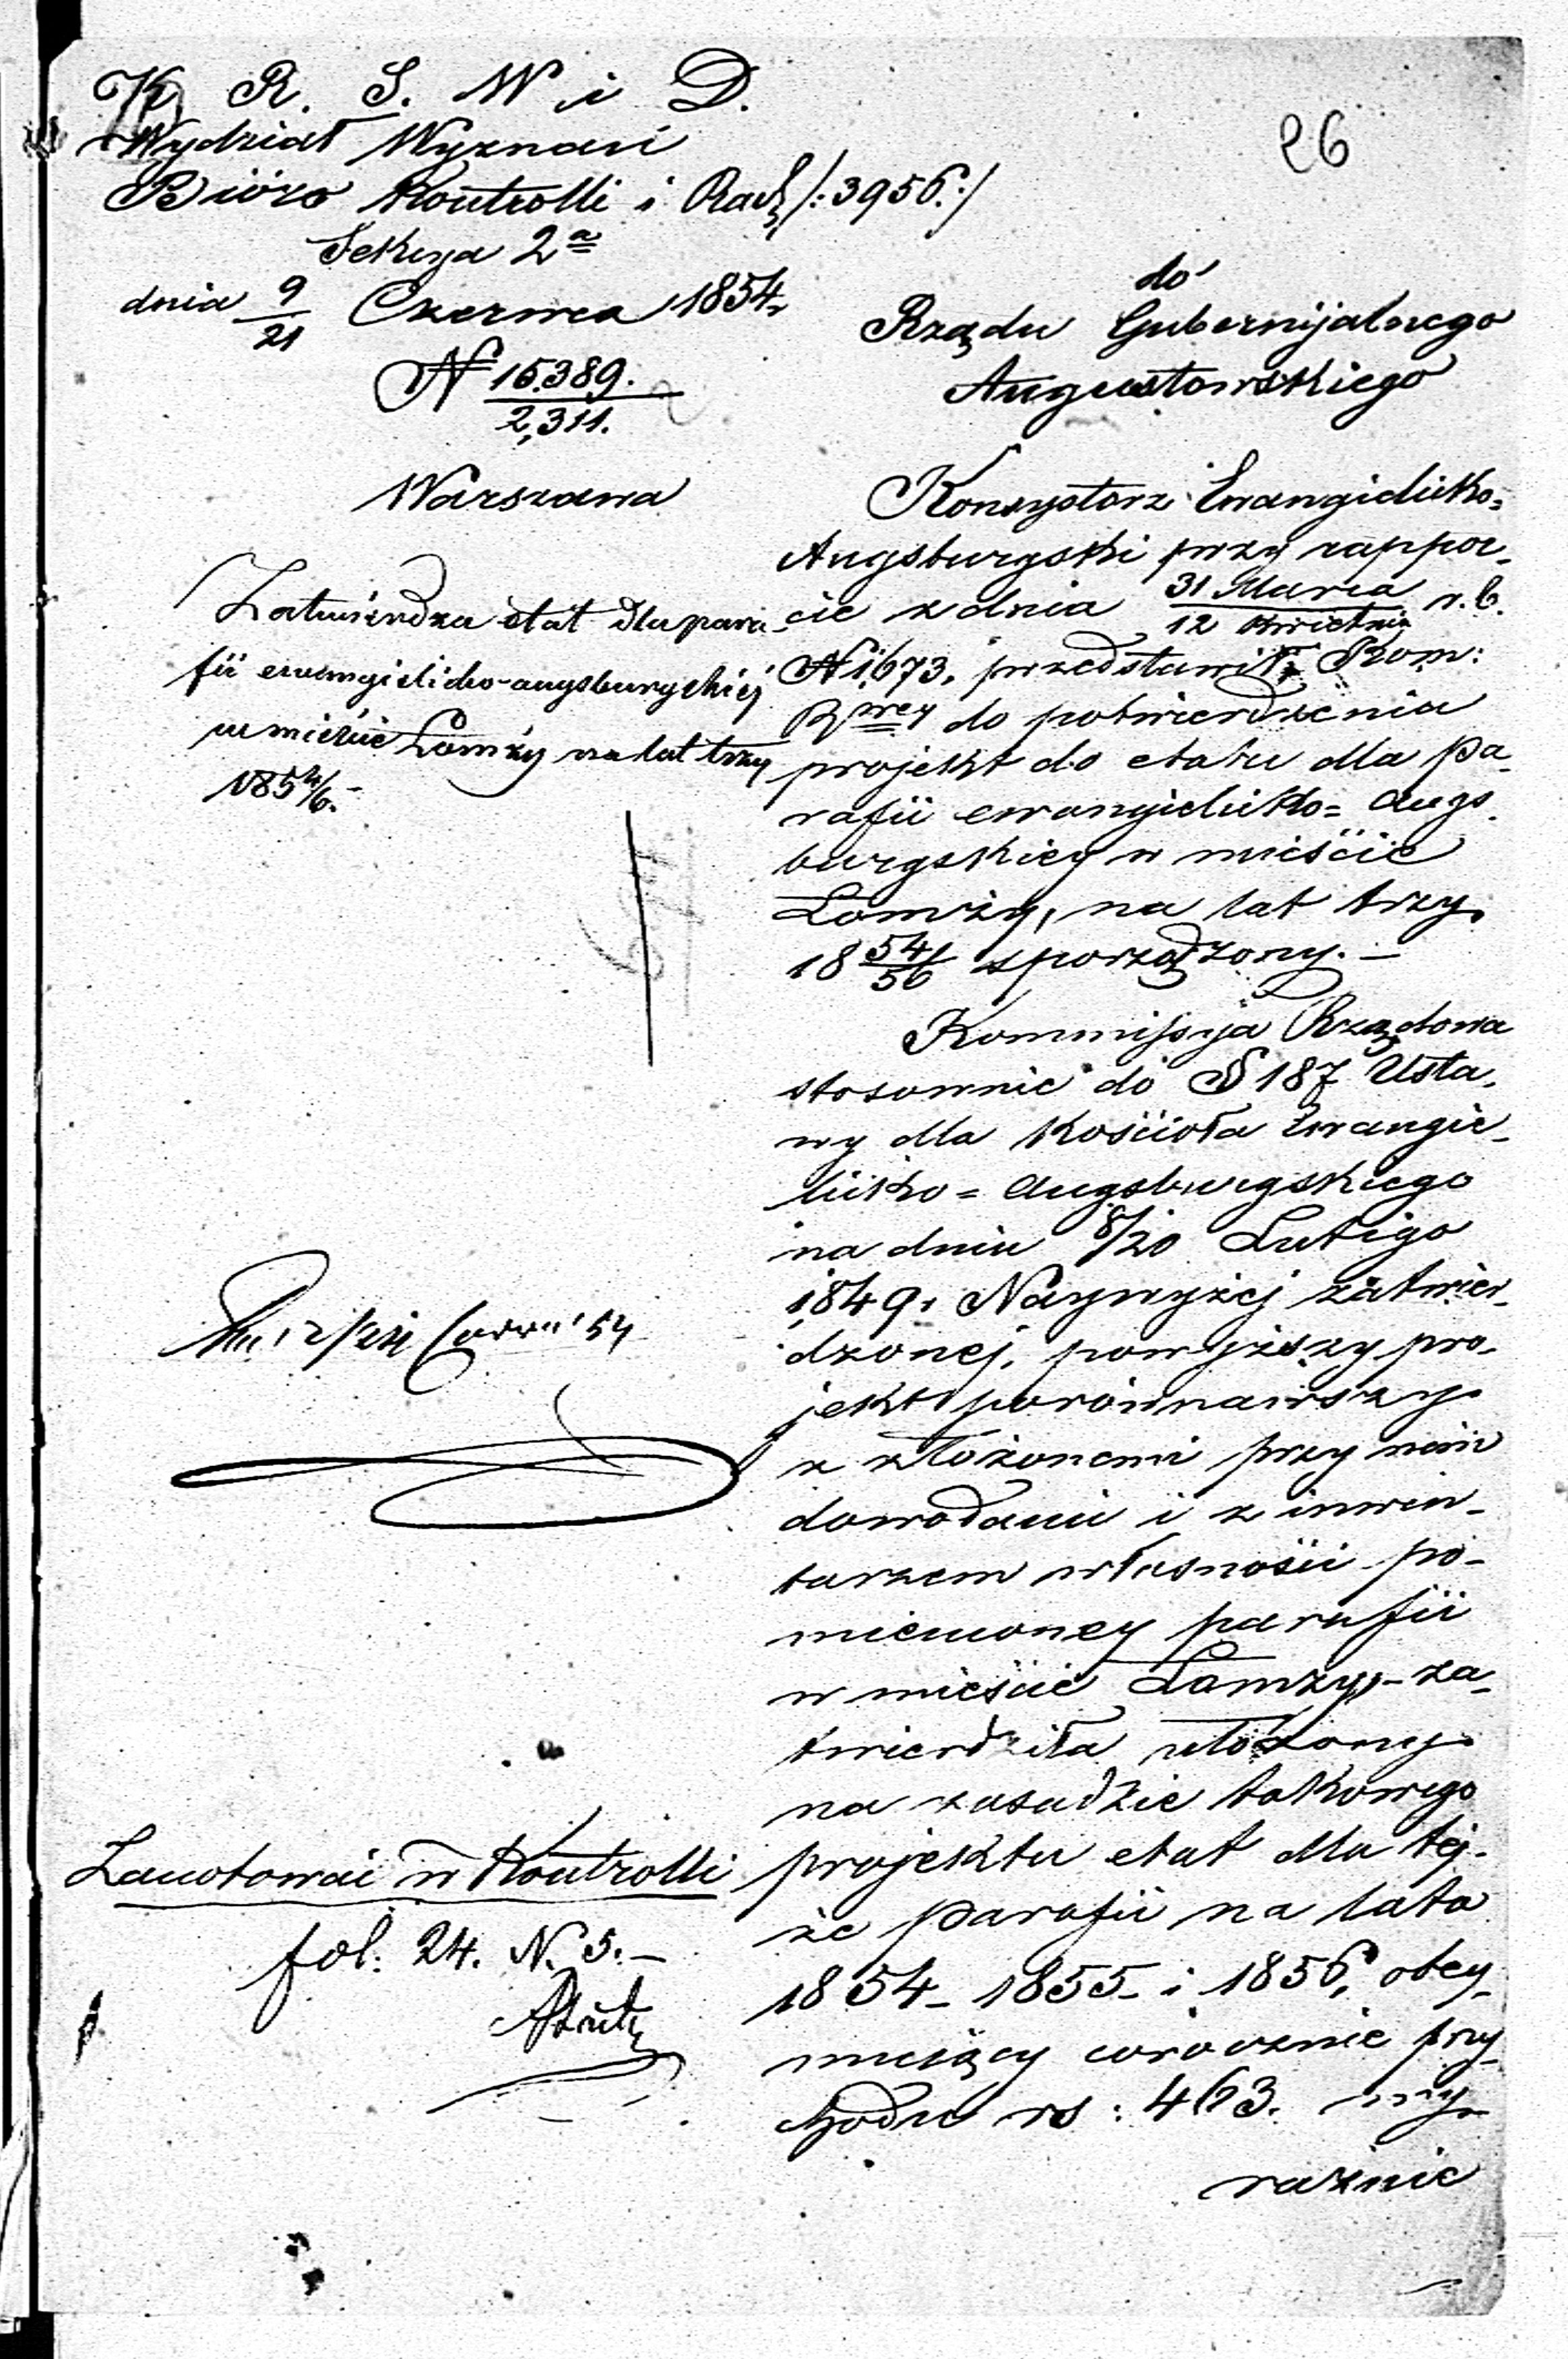 26
K R. S. W i D.
Wydział Wyznań
Bióro Kontrolli i Rach /:3956:/
Sekcya 2ª
dnia 9/21 Czerwca 1854
N 15389./2,311.
Warszawa
do
Rządu Gubernijalnego
Augustowskiego
Zatwierdza etat dla para-
fii ewangielicko-augsburgskiéj
w mieście Łomży na lat trzy
1854/6.-
Konsystorz Ewangielicko=
Augsburgski przy rappor-
cie z dnia 31 Marca/12 Kwietnia r. b.
N 1673, przedstawił Kom:
Rzwey do potwierdzenia
projekt do etatu dla pa-
rafii ewangielicko= Augs-
burgskiey w mieście
Łomży, na lat trzy
18 54/56 sporządzony. –
Kommissja Rządowa
stosownie do § 187 Usta-
wy dla Kościoła Ewangie-
licko = Augsburgskiego
na dniu 8/20 Lutego
1849 r Naywyżej zatwier-
dzonej, powyższy pro-
jekt porównawszy
z złożonemi przy nim
dowodami i z inwen-
tarzem własności po-
mienioney parafii
w mieście Łomży, – za-
twierdziła ułożony
na zasadzie takowego
projektu etat dla tej-
że parafii na lata
1854 – 1855 – i 1856, obey-
mujący corocznie przy-
chodu rs : 463. wy-
raźnie
Zanotować w Kontrolli
fol: 24. N. 5. –